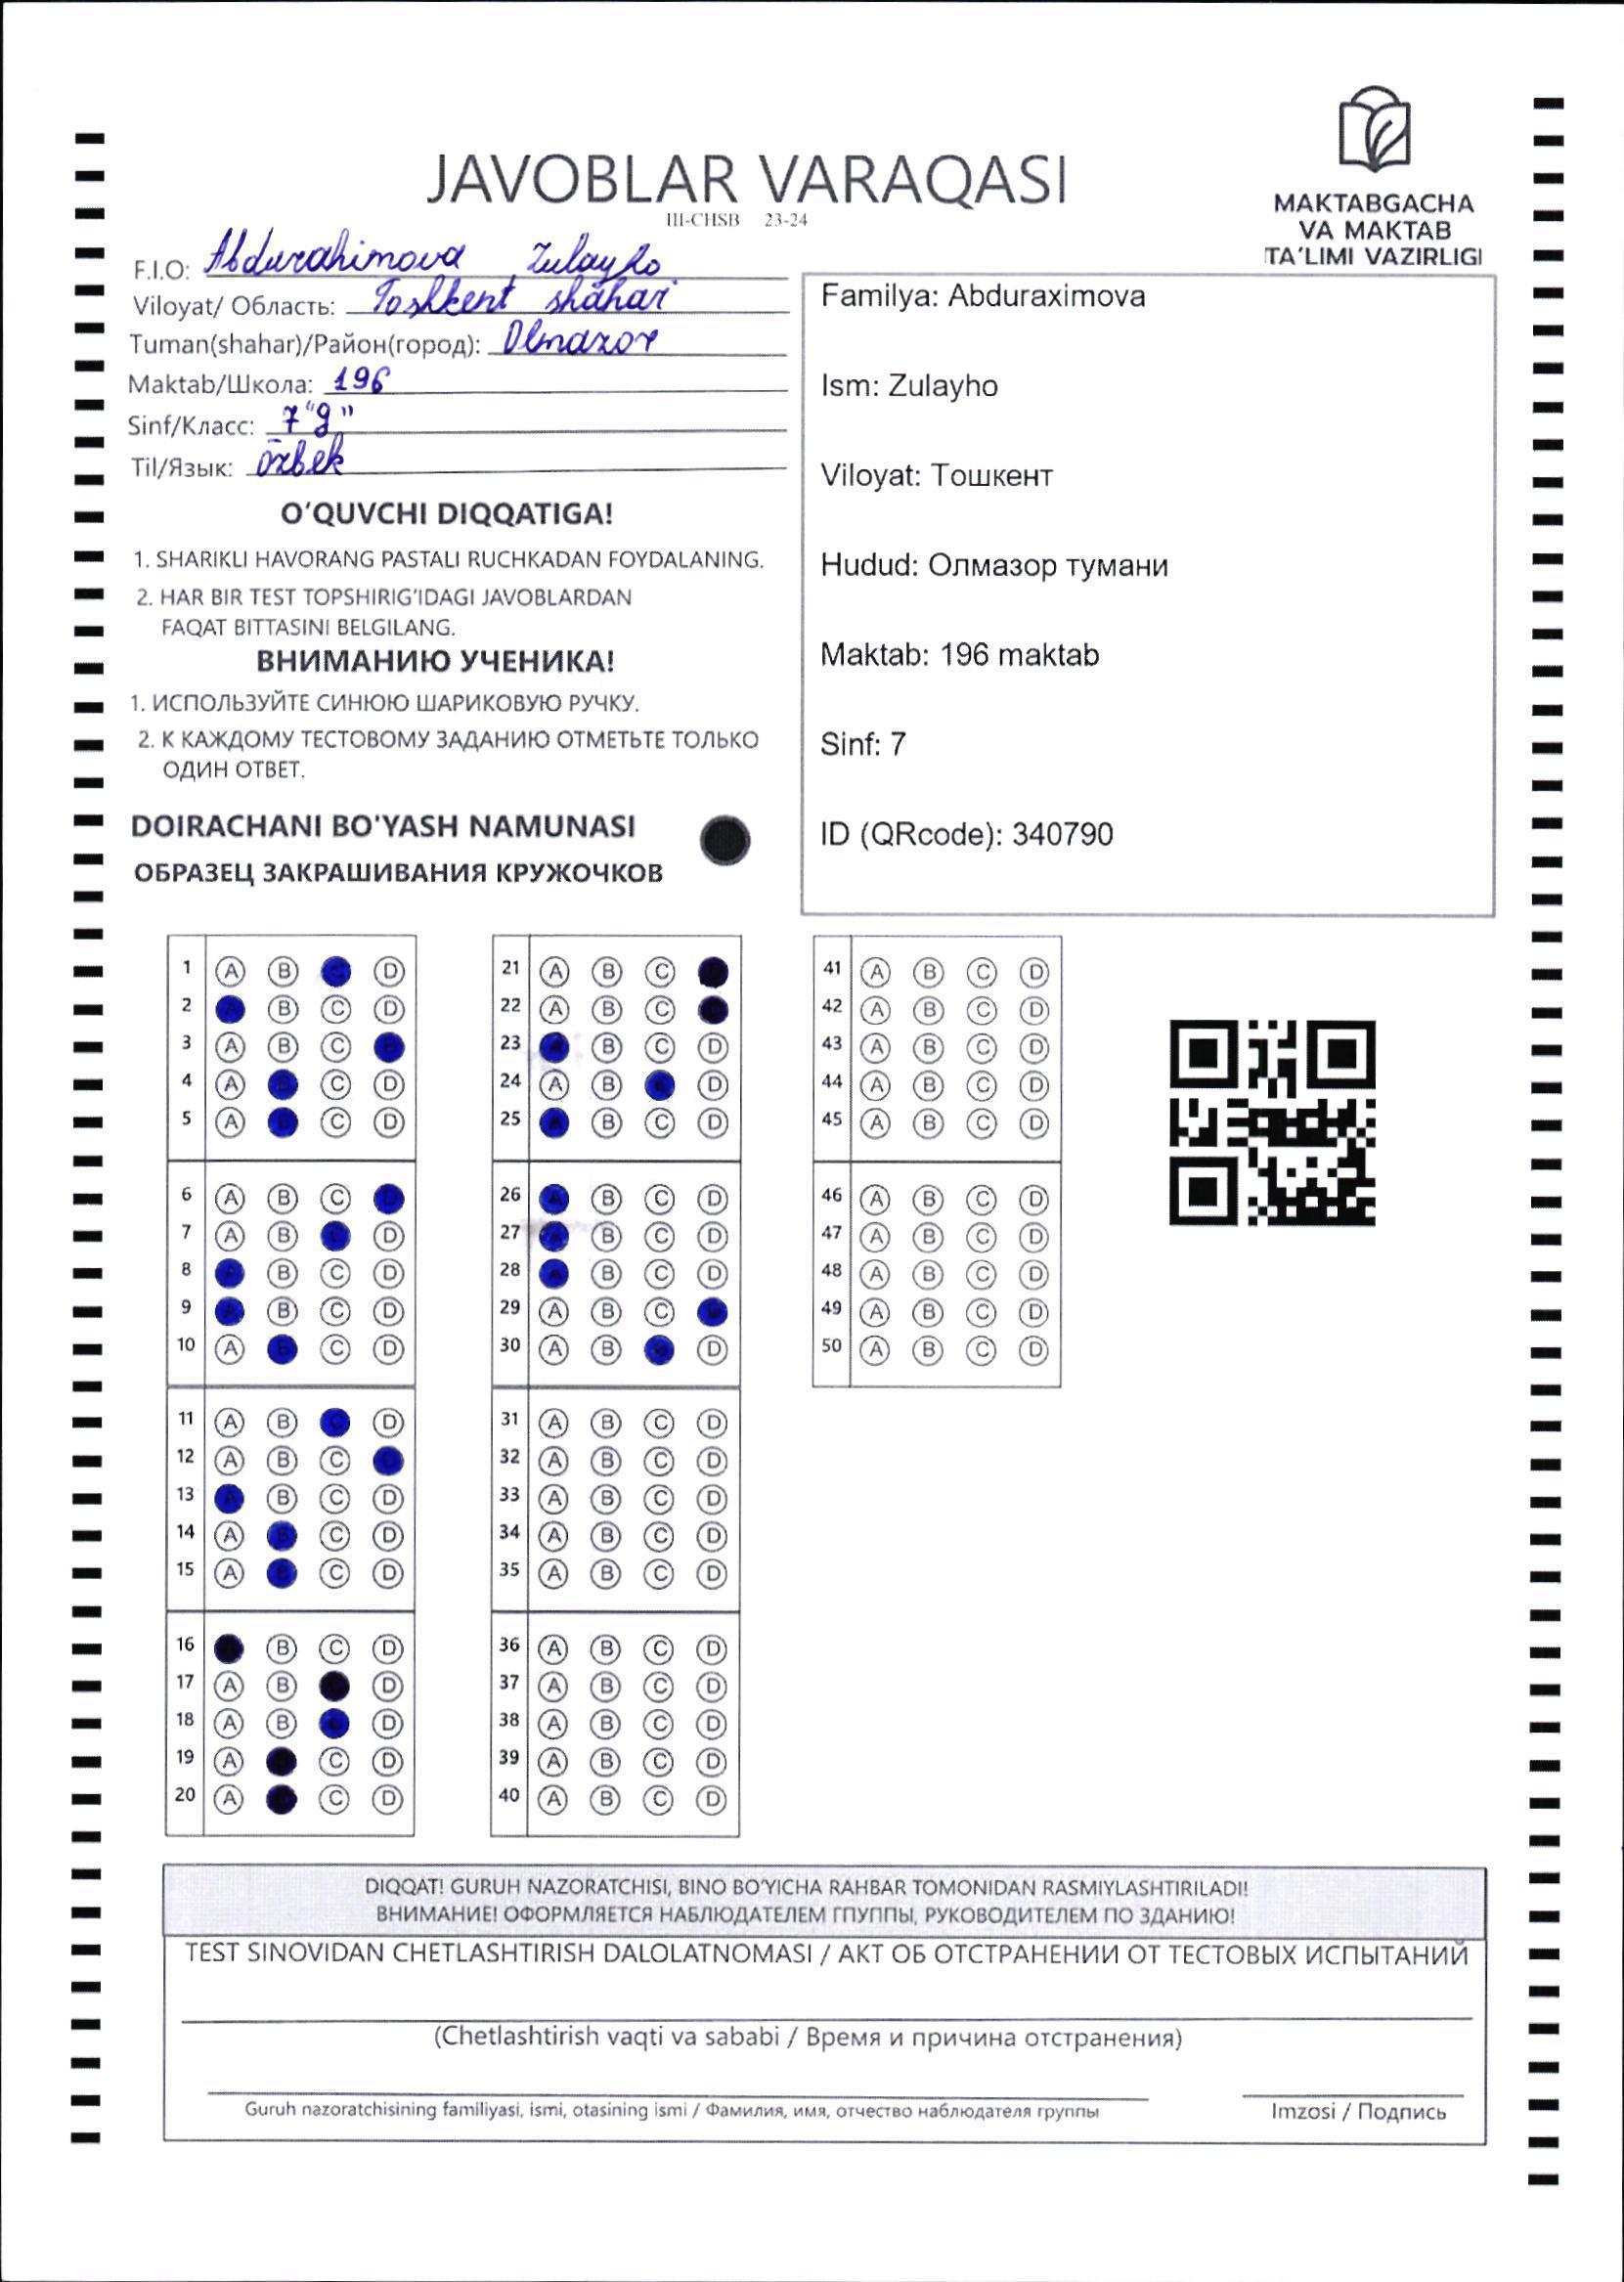 JAVOBLAR VARAQASI
III-CHSB 23-24
MAKTABGACHA
VA MAKTAB
TA'LIMI VAZIRLIGI
F.I.O: Abdurahimova Zulayho
Viloyat/ Область: Toshkent shahari
Tuman(shahar)/Район(город): Olmazor
Maktab/Школа: 196
Sinf/Класс: 7 "g"
Til/Язык: özbek
O'QUVCHI DIQQATIGA!
1. SHARIKLI HAVORANG PASTALI RUCHKADAN FOYDALANING.
2. HAR BIR TEST TOPSHIRIG'IDAGI JAVOBLARDAN
FAQAT BITTASINI BELGILANG.
ВНИМАНИЮ УЧЕНИКА!
1. ИСПОЛЬЗУЙТЕ СИНЮЮ ШАРИКОВУЮ РУЧКУ.
2. К КАЖДОМУ ТЕСТОВОМУ ЗАДАНИЮ ОТМЕТЬТЕ ТОЛЬКО
ОДИН ОТВЕТ.
DOIRACHANI BO'YASH NAMUNASI
ОБРАЗЕЦ ЗАКРАШИВАНИЯ КРУЖОЧКОВ
Familya: Abduraximova
Ism: Zulayho
Viloyat: Тошкент
Hudud: Олмазор тумани
Maktab: 196 maktab
Sinf: 7
ID (QRcode): 340790
1 A B C D
2 A B C D
3 A B C D
4 A B C D
5 A B C D
6 A B C D
7 A B C D
8 A B C D
9 A B C D
10 A B C D
11 A B C D
12 A B C D
13 A B C D
14 A B C D
15 A B C D
16 B C D
17 A B D
18 A B C D
19 A C D
20 A C D
21 A B C
22 A B C
23 A B C D
24 A B C D
25 A B C D
26 A B C D
27 A B C D
28 A B C D
29 A B C D
30 A B C D
31 A B C D
32 A B C D
33 A B C D
34 A B C D
35 A B C D
36 A B C D
37 A B C D
38 A B C D
39 A B C D
40 A B C D
41 A B C D
42 A B C D
43 A B C D
44 A B C D
45 A B C D
46 A B C D
47 A B C D
48 A B C D
49 A B C D
50 A B C D
DIQQAT! GURUH NAZORATCHISI, BINO BO'YICHA RAHBAR TOMONIDAN RASMIYLASHTIRILADI!
ВНИМАНИЕ! ОФОРМЛЯЕТСЯ НАБЛЮДАТЕЛЕМ ГПУППЫ, РУКОВОДИТЕЛЕМ ПО ЗДАНИЮ!
TEST SINOVIDAN CHETLASHTIRISH DALOLATNOMASI / АКТ ОБ ОТСТРАНЕНИИ ОТ ТЕСТОВЫХ ИСПЫТАНИЙ
(Chetlashtirish vaqti va sababi / Время и причина отстранения)
Guruh nazoratchisining familiyasi, ismi, otasining ismi / Фамилия, имя, отчество наблюдателя группы
Imzosi / Подпись